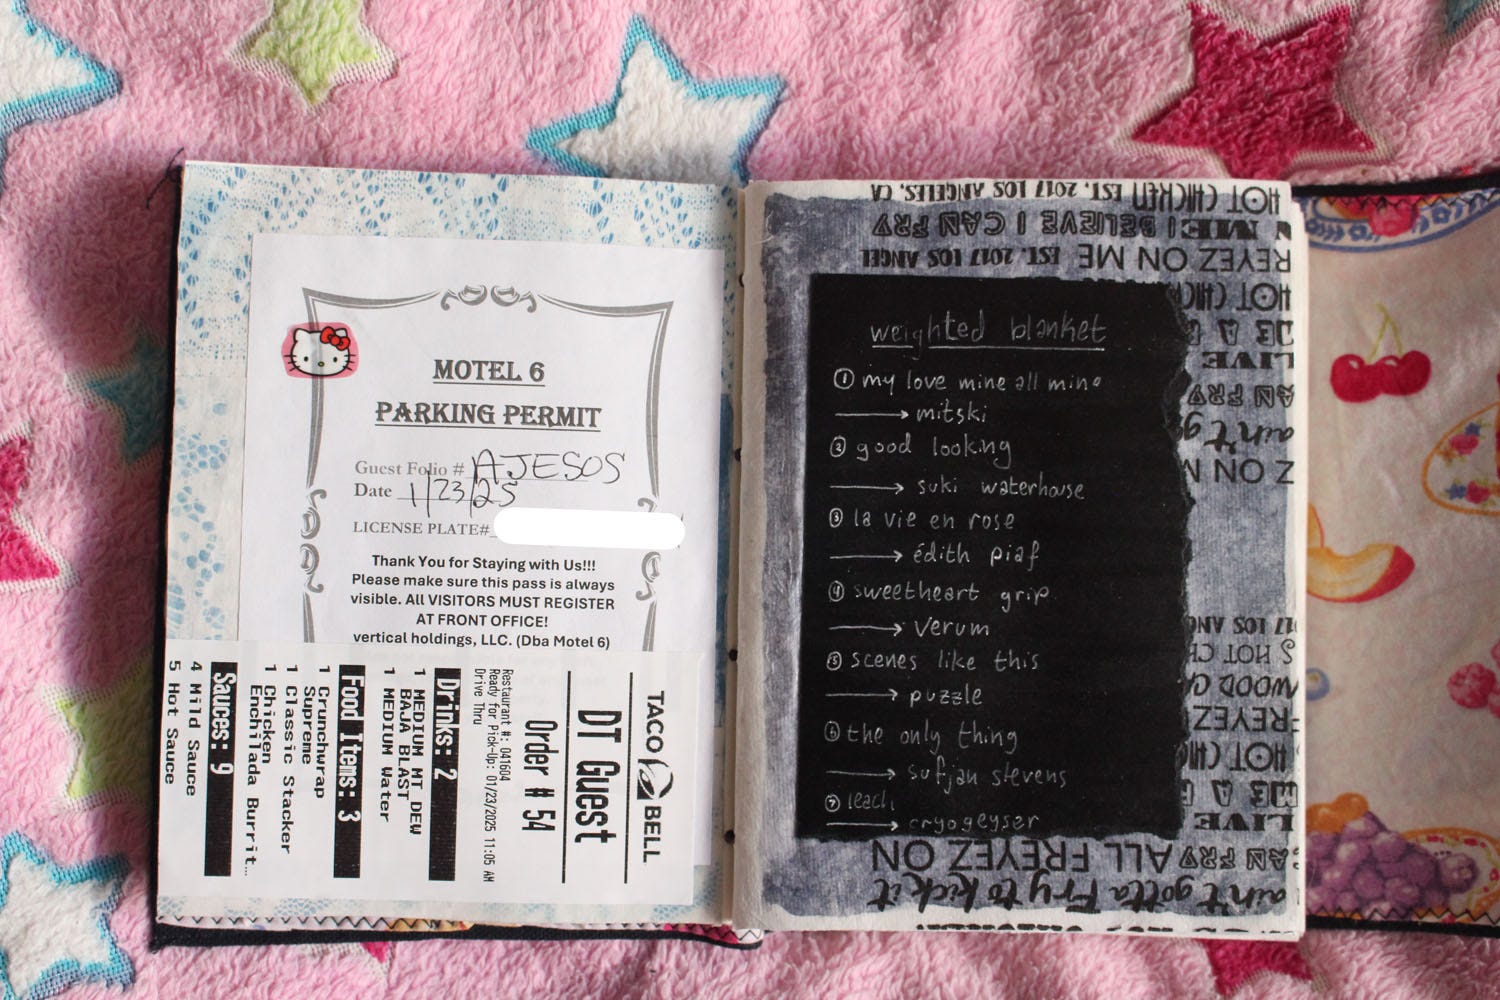 MOTEL 6
PARKING PERMIT
Guest Folio # AJESOS
Date 1/23/25
LICENSE PLATE#
Thank You for Staying with Us!!!
Please make sure this pass is always
visible. All VISITORS MUST REGISTER
AT FRONT OFFICE!
vertical holdings, LLC. (Dba Motel 6)
TACO BELL
DT Guest
Order # 54
Restaurant #: 041604
Ready for Pick-Up: 01/23/2025 11:05 AM
Drive Thru
Drinks: 2
1 MEDIUM MT DEW
BAJA BLAST
1 MEDIUM Water
Food Items: 3
1 Crunchwrap
Supreme
1 Classic Stacker
1 Chicken
Enchilada Burrit...
Sauces: 9
4 Mild Sauce
5 Hot Sauce
weighted blanket
① my love mine all mine
mitski
② good looking
suki waterhouse
③ la vie en rose
édith piaf
④ sweetheart grip
verum
⑤ scenes like this
puzzle
⑥ the only thing
sufjan stevens
⑦ leach
cryogeyser
ain't gotta Fry to kick it
AN FRY ALL FREYEZ ON
LIVE
ME A
HOT CHIC
FREYEZ
WOOD CA
S HOT CH
017 LOS AN
Z ON M
ain't g
AN FRY
LIVE
ME A
HOT CHIC
REYEZ ON ME EST. 2017 LOS ANGEL
ME I BELIEVE I CAN FRY
HOT CHICKEN EST. 2017 LOS ANGELES, CA